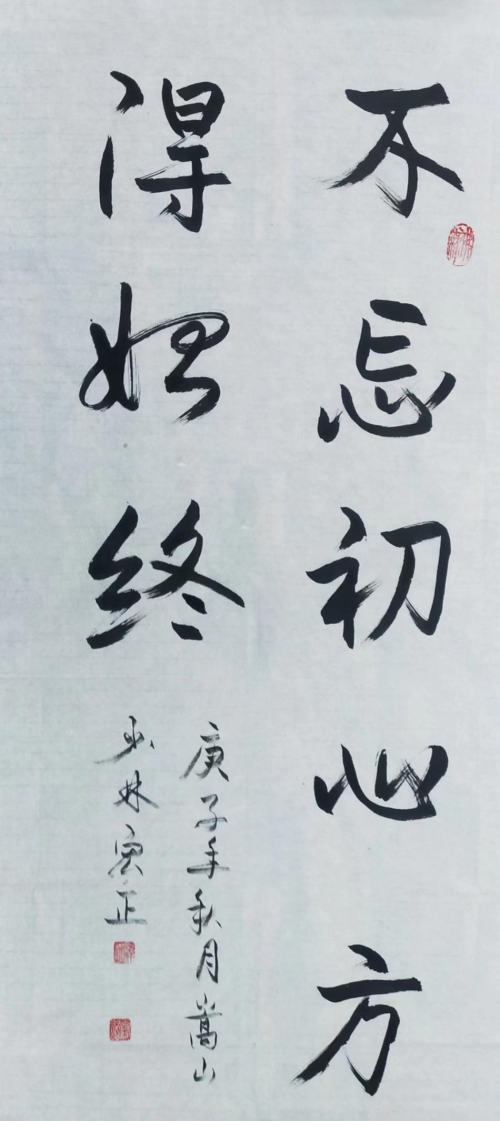 不忘初心方
得始终
庚子年秋月嵩山
少林寅正